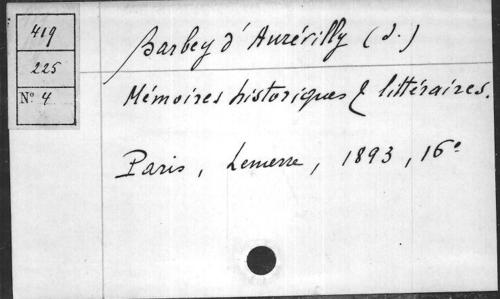 419
225
Nº 4
Barbey d'Aurévilly (J.)
Mémoires historiques & littéraires.
Paris, Lemerre, 1893, 16º